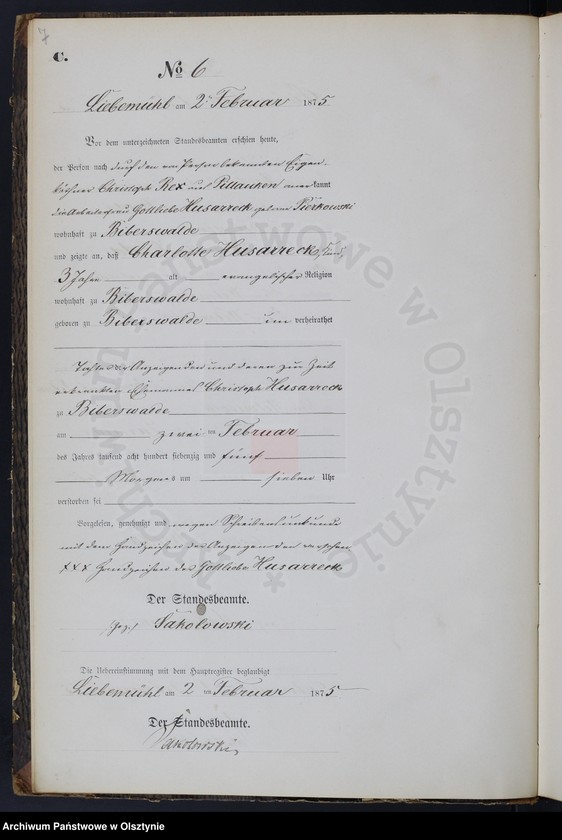 C.
No 6
Liebemühl am 2. Februar 1875
Vor dem unterzeichneten Standesbeamten erschien heute,
der Person nach durch den von Person bekannten Eigen-
käthner Christoph Rex aus Pillauken anerkannt
die Arbeiterfrau Gottliebe Husarreck geborne Pierkowski
wohnhaft zu Biberswalde
und zeigte an, daß Charlotte Husarreck, Kind,
3 Jahre alt evangelischer Religion
wohnhaft zu Biberswalde
geboren zu Biberswalde un verheirathet
Tochter der Anzeigenden und deren zur Zeit
erkrankten Ehemannes Christoph Husarreck
zu Biberswalde
am zwei ten Februar
des Jahres tausend acht hundert siebenzig und fünf
Morgens um sieben Uhr
verstorben sei
Vorgelesen, genehmigt und wegen Schreibensunkunde
mit dem Handzeichen der Anzeigenden versehen
XXX Handzeichen der Gottliebe Husarreck
Der Standesbeamte.
(gez.) Sakolowski
Die Uebereinstimmung mit dem Hauptregister beglaubigt
Liebemühl am 2 ten Februar 1875
Der Standesbeamte.
Sakolowski
Archiwum Państwowe w Olsztynie
Archiwum Państwowe w Olsztynie